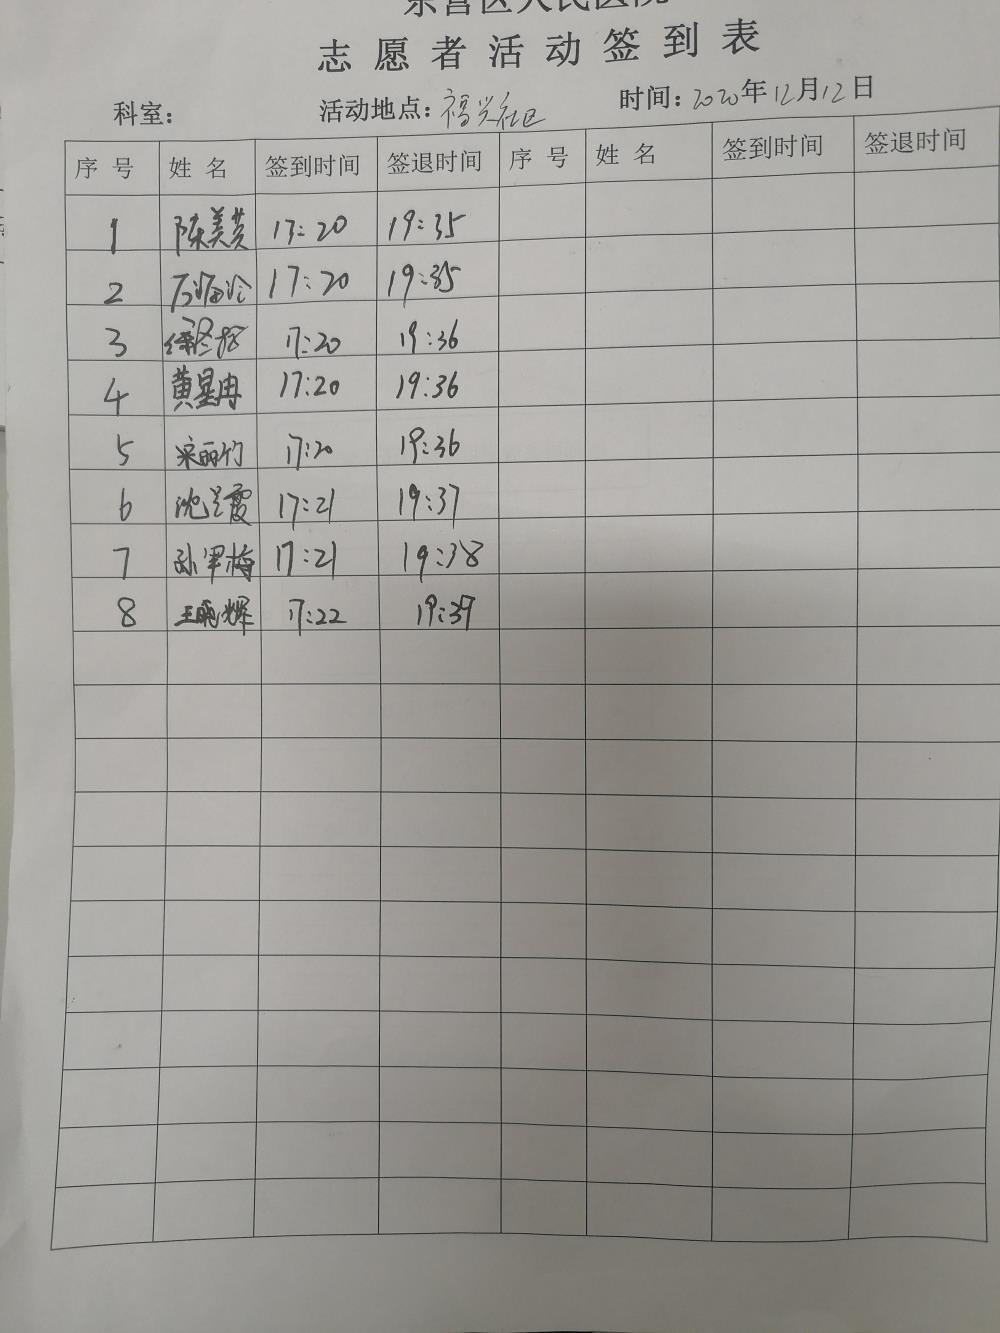 东营区人民医院
志愿者活动签到表
科室： 活动地点：福兴社区 时间：2020年12月12日
序号 姓名 签到时间 签退时间 序号 姓名 签到时间 签退时间
1 陈美芸 17:20 19:35
2 17:20 19:35
3 17:20 19:36
4 黄星冉 17:20 19:36
5 宋丽竹 17:20 19:36
6 沈兰霞 17:21 19:37
7 孙翠梅 17:21 19:38
8 王晓辉 17:22 19:39